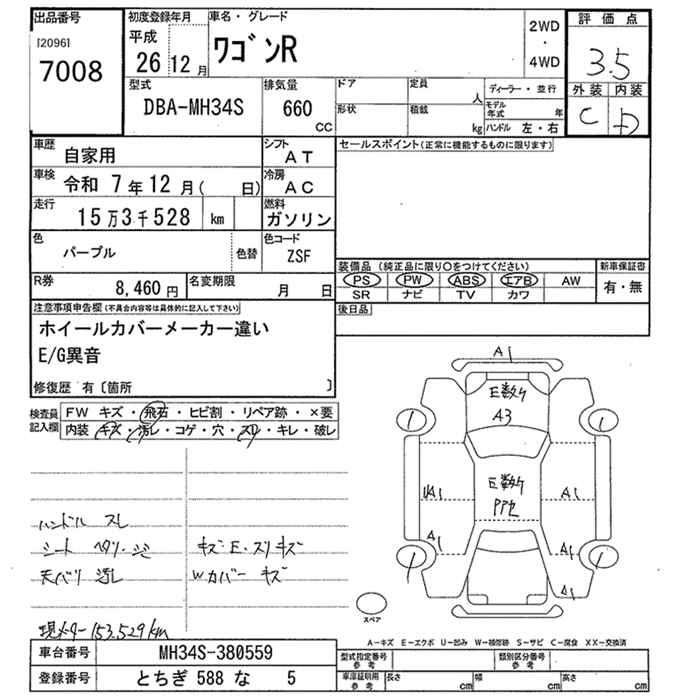 出品番号
[20961
7008
初度登録年月
平成
26 12 月
車名・グレード
ワゴンR
2WD
・
4WD
評価点
3.5
外装 内装
C D
型式
DBA-MH34S
排気量
660
CC
ドア
定員
人
形状
積載
kg
ディーラー・並行
モデル
年式 年
ハンドル 左・右
車歴
自家用
シフト
AT
車検
令和 7年12月( 日)
冷房
AC
走行
15万3千528 km
燃料
ガソリン
色
パープル
色替
色コード
ZSF
R券
8,460円
名変期限
月 日
セールスポイント(正常に機能するものに限ります)
装備品(純正品に限り○をつけてください)
新車保証書
PS PW ABS エアB AW
SR ナビ TV カワ
有・無
後日品
注意事項申告欄(不具合内容等は具体的に記入して下さい)
ホイールカバーメーカー違い
E/G異音
修復歴 有〔箇所 〕
検査員
記入欄
FW キズ・飛石・ヒビ割・リペア跡・×要
内装・キズ・汚レ・コゲ・穴・スレ・キレ・破レ
ハンドル スレ
シート ヘタリ・シミ
キズ・E・スリキズ
天バリ 汚レ
Wカバー キズ
現メーター153,529km
A1
E数ケ
A3
E数ケ
A1
A1
A1
A1
A1
スペア
A-キズ E-エクボ U-凹み W-補修跡 S-サビ C-腐食 XX-交換済
車台番号
MH34S-380559
登録番号
とちぎ 588 な 5
型式指定番号
参考
類別区分番号
参考
車庫証明用
参考
長さ cm
幅 cm
高さ cm